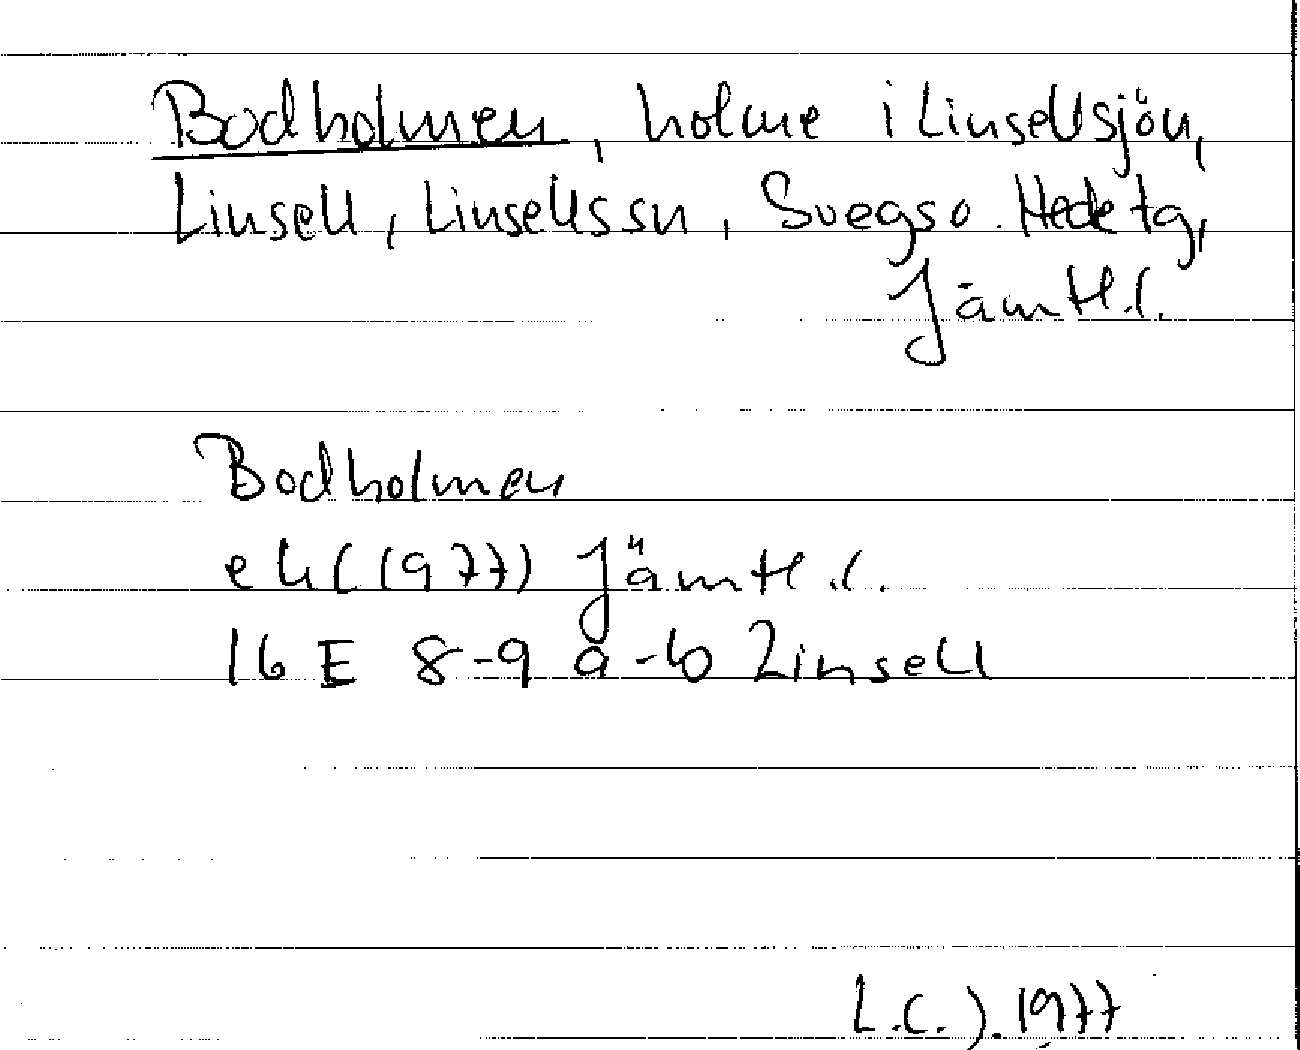 Bodholmen, holme i Linsellsjön,
Linsell, Linsells sn, Svegs o. Hede tg,
Jämtl.l.
Bodholmen
ek (1977) Jämtl.l.
16 E 8-9 a-b Linsell
L.C.J. 1977